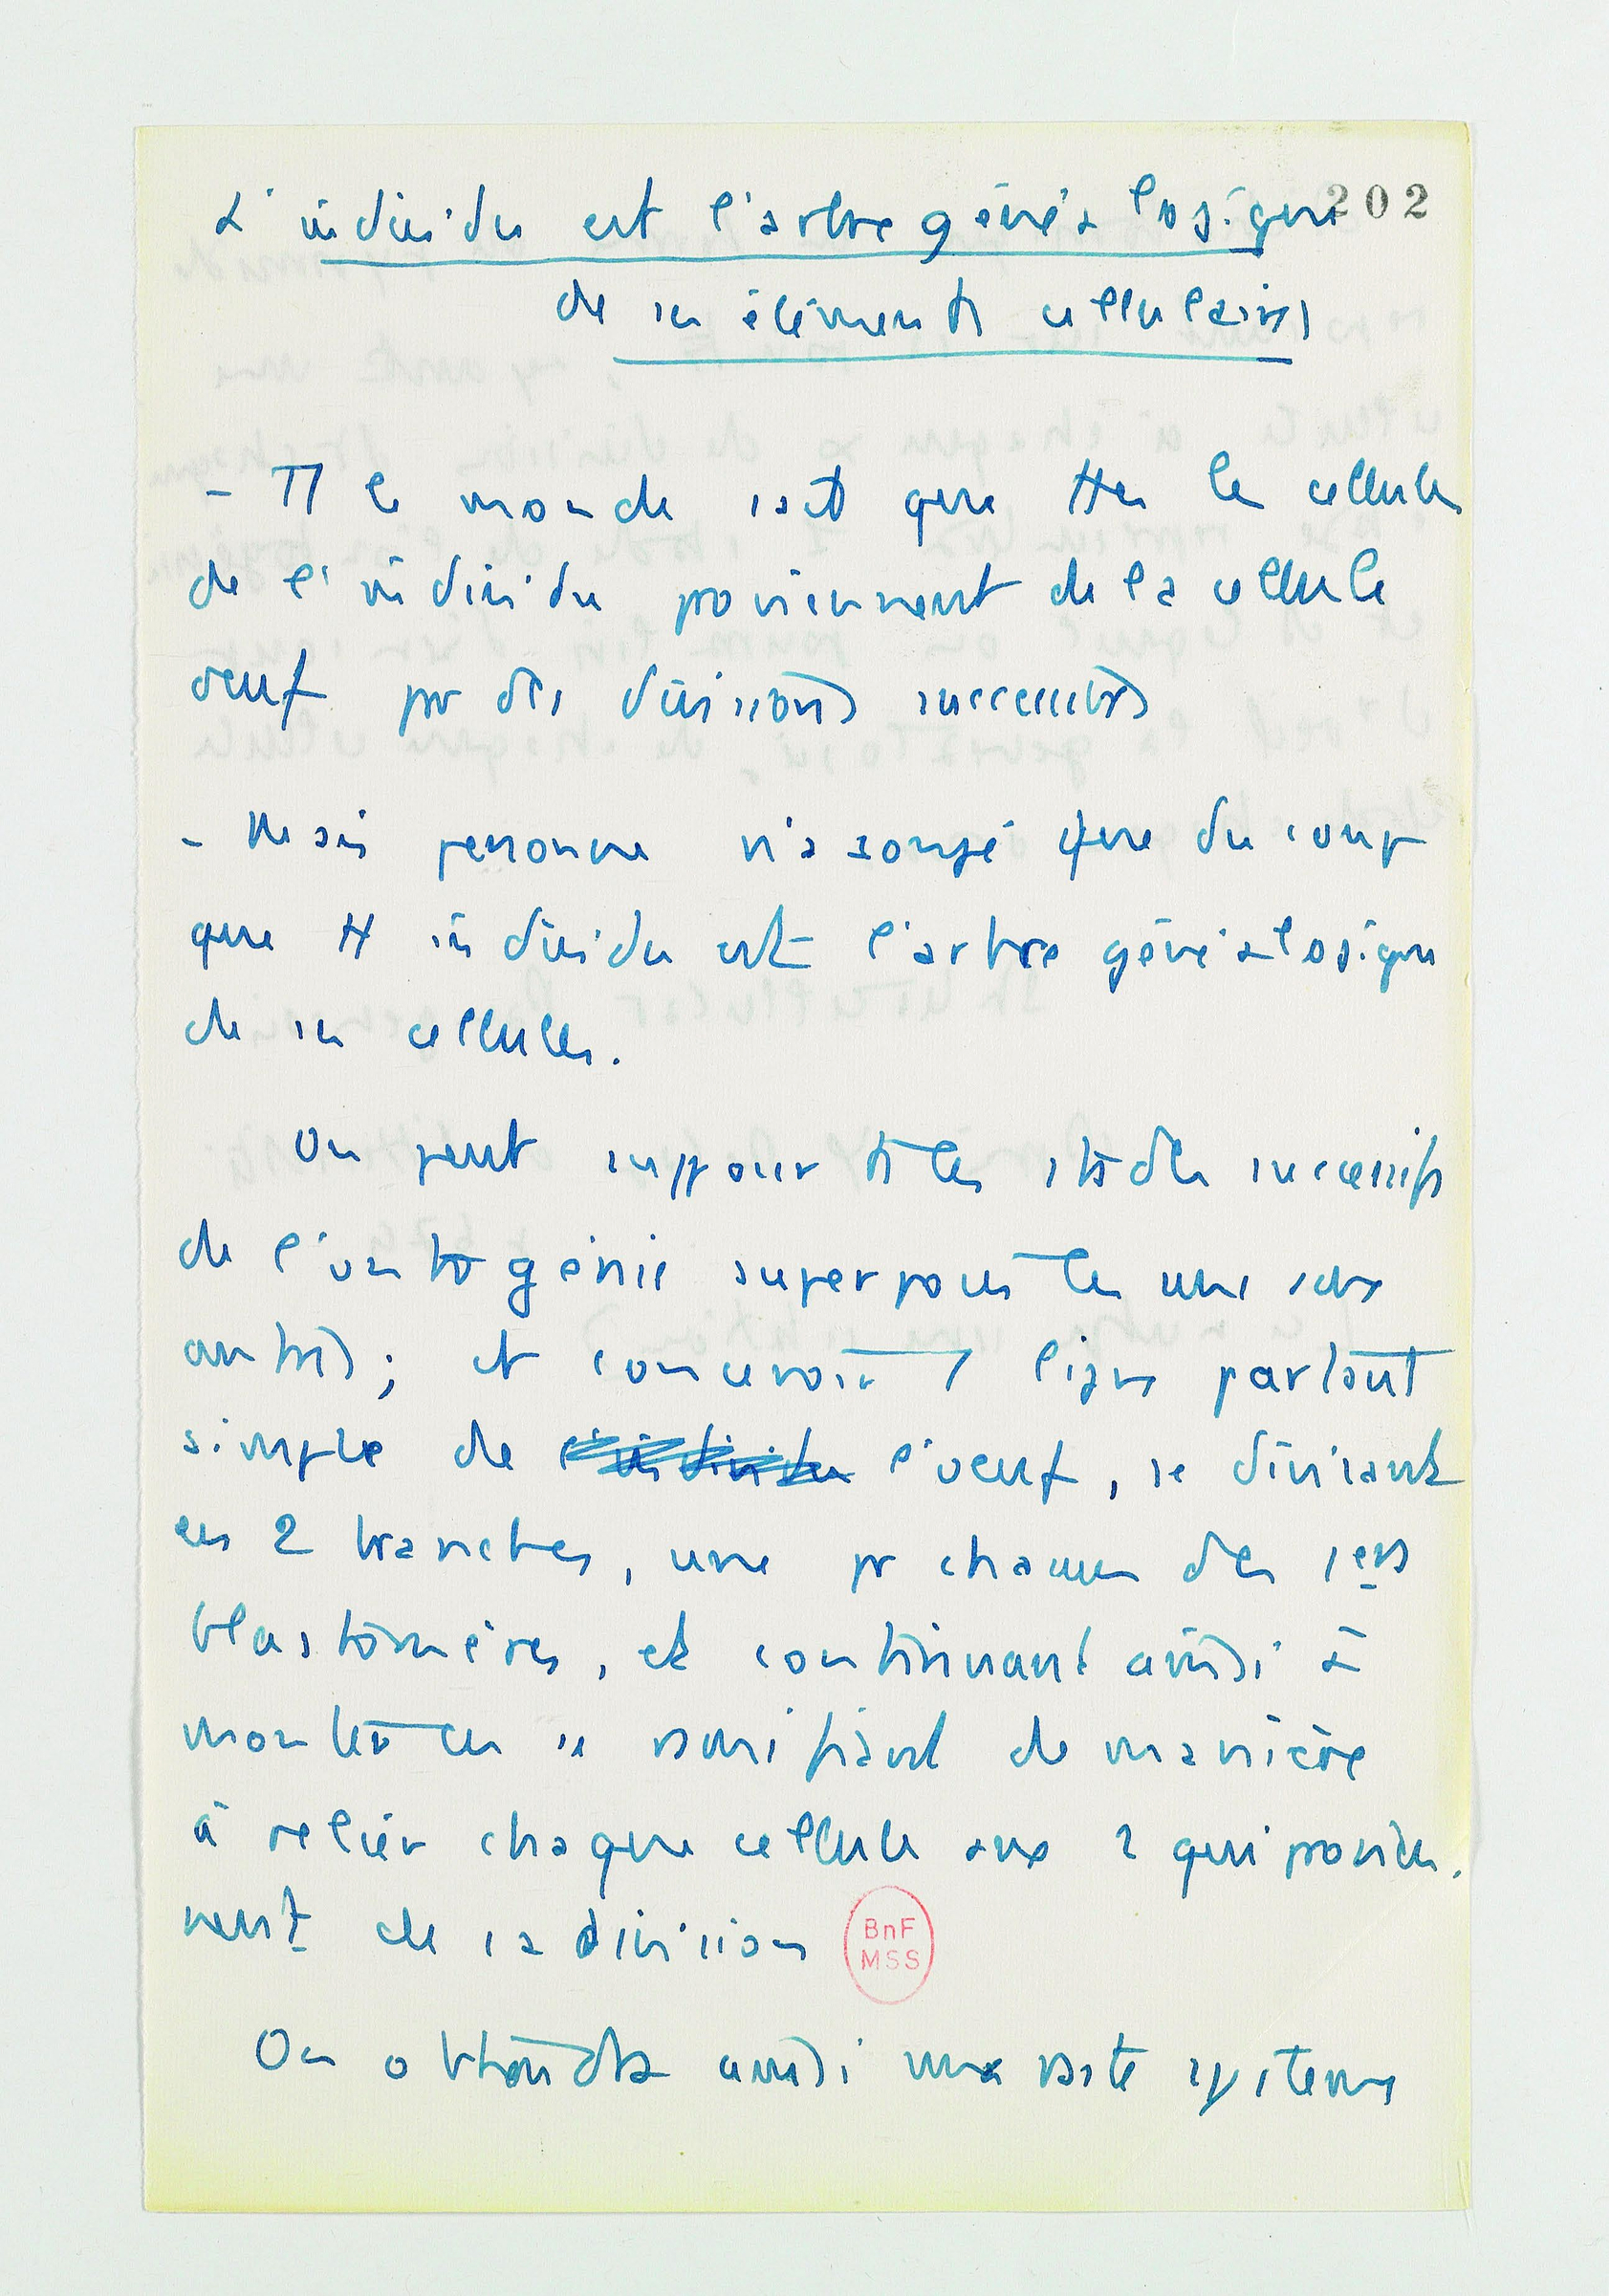 202
L'individu est l'arbre généalogique
de ses éléments cellulaires
- Tt le monde sait que ttes les cellules
de l'individu proviennent de la cellule
oeuf par des divisions successives
- Mais personne n'a songé que du coup
que tt individu est l'arbre généalogique
de ses cellules.
On peut supposer ts les stades successifs
de l'ontogénie superposés les uns aux
autres ; et concevoir 1 ligne partant
simple de l'individu l'oeuf, se divisant
en 2 branches, une pr chacun des 1ers
blastomères, et continuant ainsi à
monter en se ramifiant de manière
à relier chaque cellule aux 2 qui provien-
nent de sa division
BnF
MSS
On obtiendra ainsi une vaste systeme